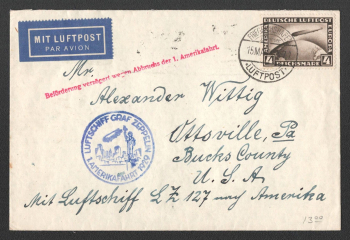 MIT LUFTPOST
PAR AVION
DEUTSCHE LUFTPOST
EUROPA AMERIKA
4 REICHSMARK 4
LUFTPOST
Mr.
Beförderung verzögert wegen Abbruchs der 1. Amerikafahrt.
Alexander Wittig
LUFTSCHIFF GRAF ZEPPELIN
1. AMERIKAFAHRT 1929
Ottsville, Pa
Bucks County
U. S. A
Mit Luftschiff LZ 127 nach Amerika